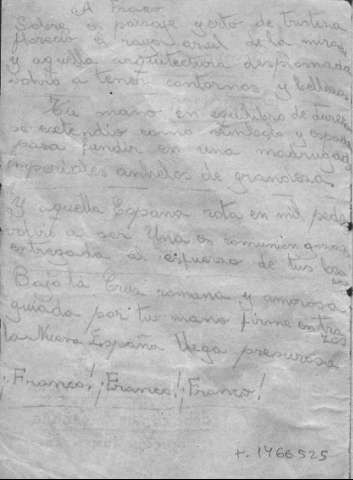 A Franco
Sobre un paisaje yerto de tristeza
floreció el rayo de la mirada
y aquella arquitectura desplomada
volvió a tener contornos y belleza
Tu mano en equilibrio de
se extendió como simbolo y espada
para fundir en una madrugada
anhelos de grandeza
Y aquella España rota en mil peda
volvió a ser Una en comunion
entregada al esfuerzo de tus
Bajo la Cruz romana y amorosa
guiada por tu mano firme entre
la Nueva España llega presurosa
¡Franco! ¡Franco! ¡Franco!
+. 1466525